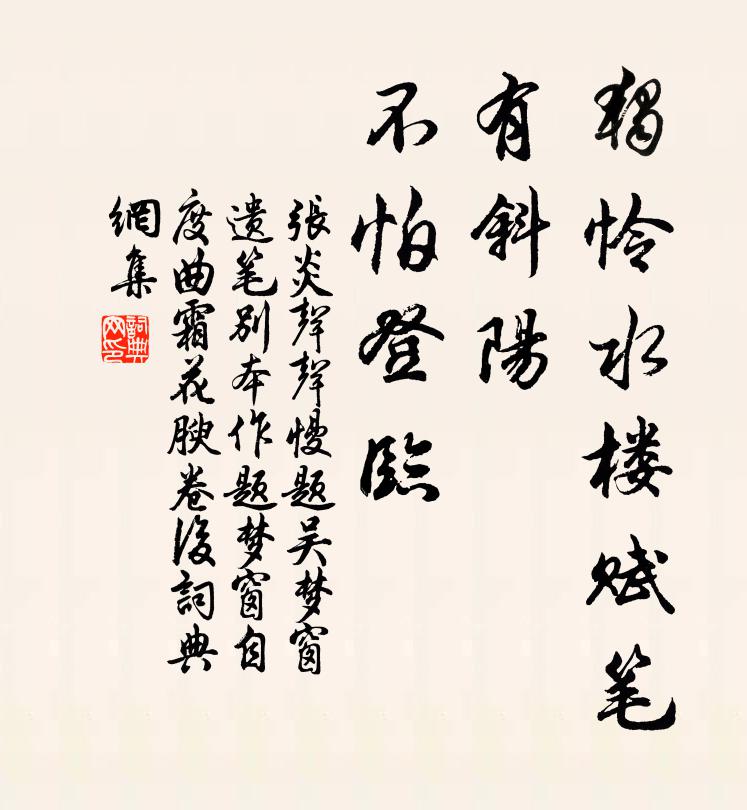 獨怜水楼赋笔
有斜陽
不怕登臨
張炎聲聲慢题吴梦窗
遗笔别本作题梦窗自
度曲霜花腴卷後詞典
網集
詞典
网印